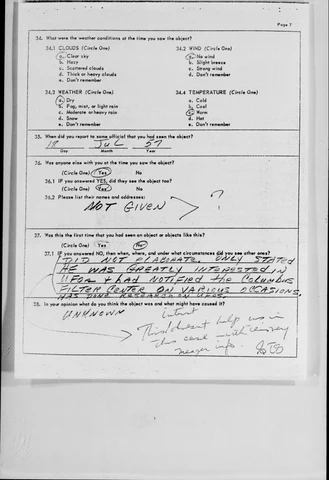 Page 7
34. What were the weather conditions at the time you saw the object?
34.1 CLOUDS (Circle One) 34.2 WIND (Circle One)
a. Clear sky a. No wind
b. Hazy b. Slight breeze
c. Scattered clouds c. Strong wind
d. Thick or heavy clouds d. Don't remember
e. Don't remember
34.3 WEATHER (Circle One) 34.4 TEMPERATURE (Circle One)
a. Dry a. Cold
b. Fog, mist, or light rain b. Cool
c. Moderate or heavy rain c. Warm
d. Snow d. Hot
e. Don't remember e. Don't remember
35. When did you report to some official that you had seen the object?
18 JUL 57
Day Month Year
36. Was anyone else with you at the time you saw the object?
(Circle One) Yes No
36.1 IF you answered YES, did they see the object too?
(Circle One) Yes No
36.2 Please list their names and addresses:
NOT GIVEN ?
37. Was this the first time that you had seen an object or objects like this?
(Circle One) Yes No
37.1 IF you answered NO, then when, where, and under what circumstances did you see other ones?
DID NOT ELABORATE. ONLY STATED
HE WAS GREATLY INTERESTED IN
UFOs & HAD NOTIFIED the COLUMBUS
FILTER CENTER ON VARIOUS OCCASIONS.
HAS DONE RESEARCH ON UFOS.
38. In your opinion what do you think the object was and what might have caused it?
UNKNOWN
This doesn't help us in
this case with
meager info.